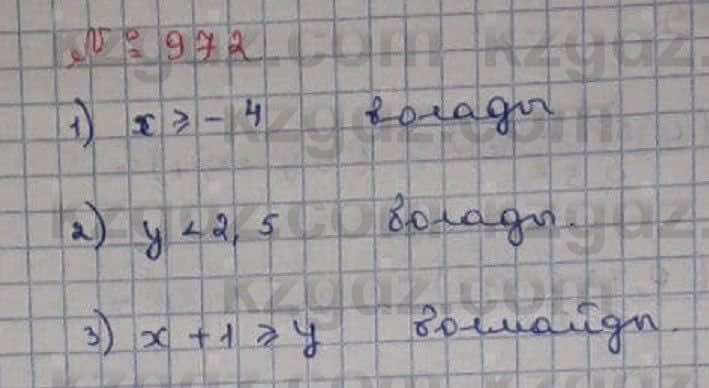 № 972
1) x ⩾ - 4 болады
2) y < 2, 5 болады.
3) x + 1 ⩾ y болмайды.
kzgdz.com